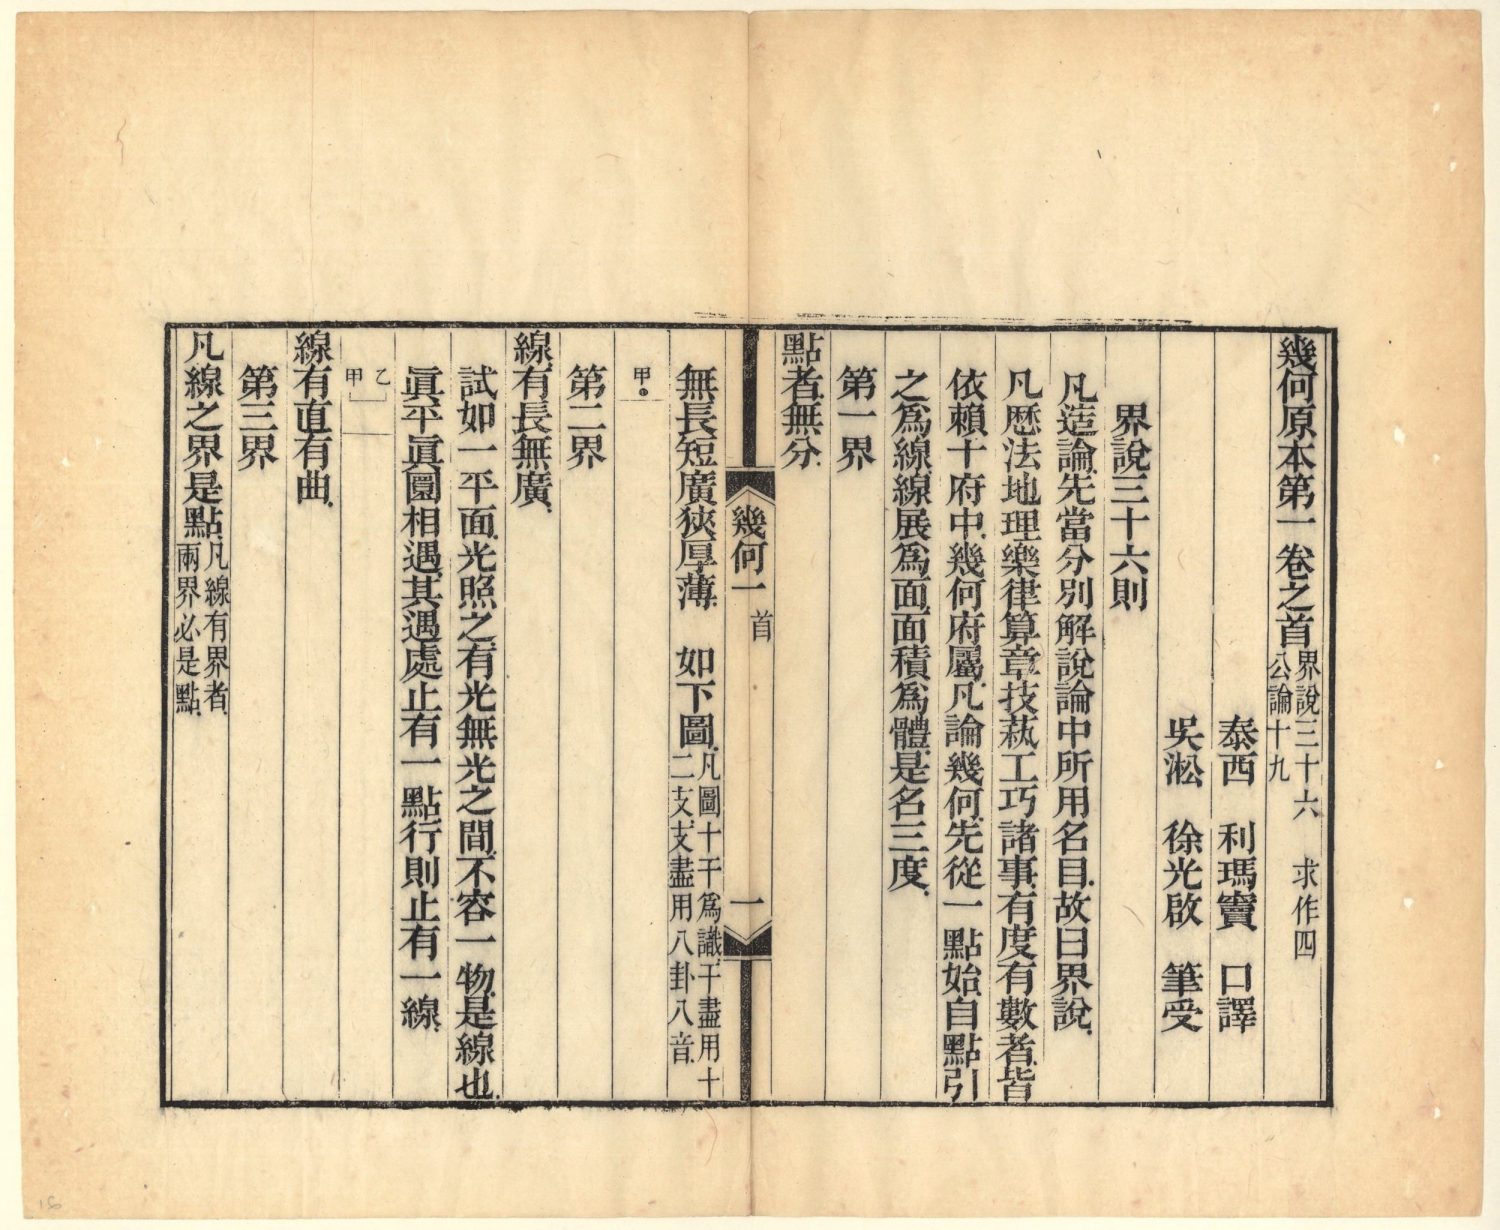 幾何原本第一卷之首界說三十六 求作四
公論十九
泰西 利瑪竇 口譯
吳淞 徐光啟 筆受
界說三十六則
凡造論先當分別解說論中所用名目故曰界說
凡歷法地理樂律算章技蓺工巧諸事有度有數者皆
依賴十府中幾何府屬凡論幾何先從一點始自點引
之爲線線展爲面面積爲體是名三度
第一界
點者無分
幾何一 首 一
無長短廣狹厚薄 如下圖凡圖十干爲識干盡用十
二支支盡用八卦八音
甲
第二界
線有長無廣
試如一平面光照之有光無光之間不容一物是線也
眞平眞圜相遇其遇處止有一點行則止有一線
乙
甲
線有直有曲
第三界
凡線之界是點凡線有界者
兩界必是點